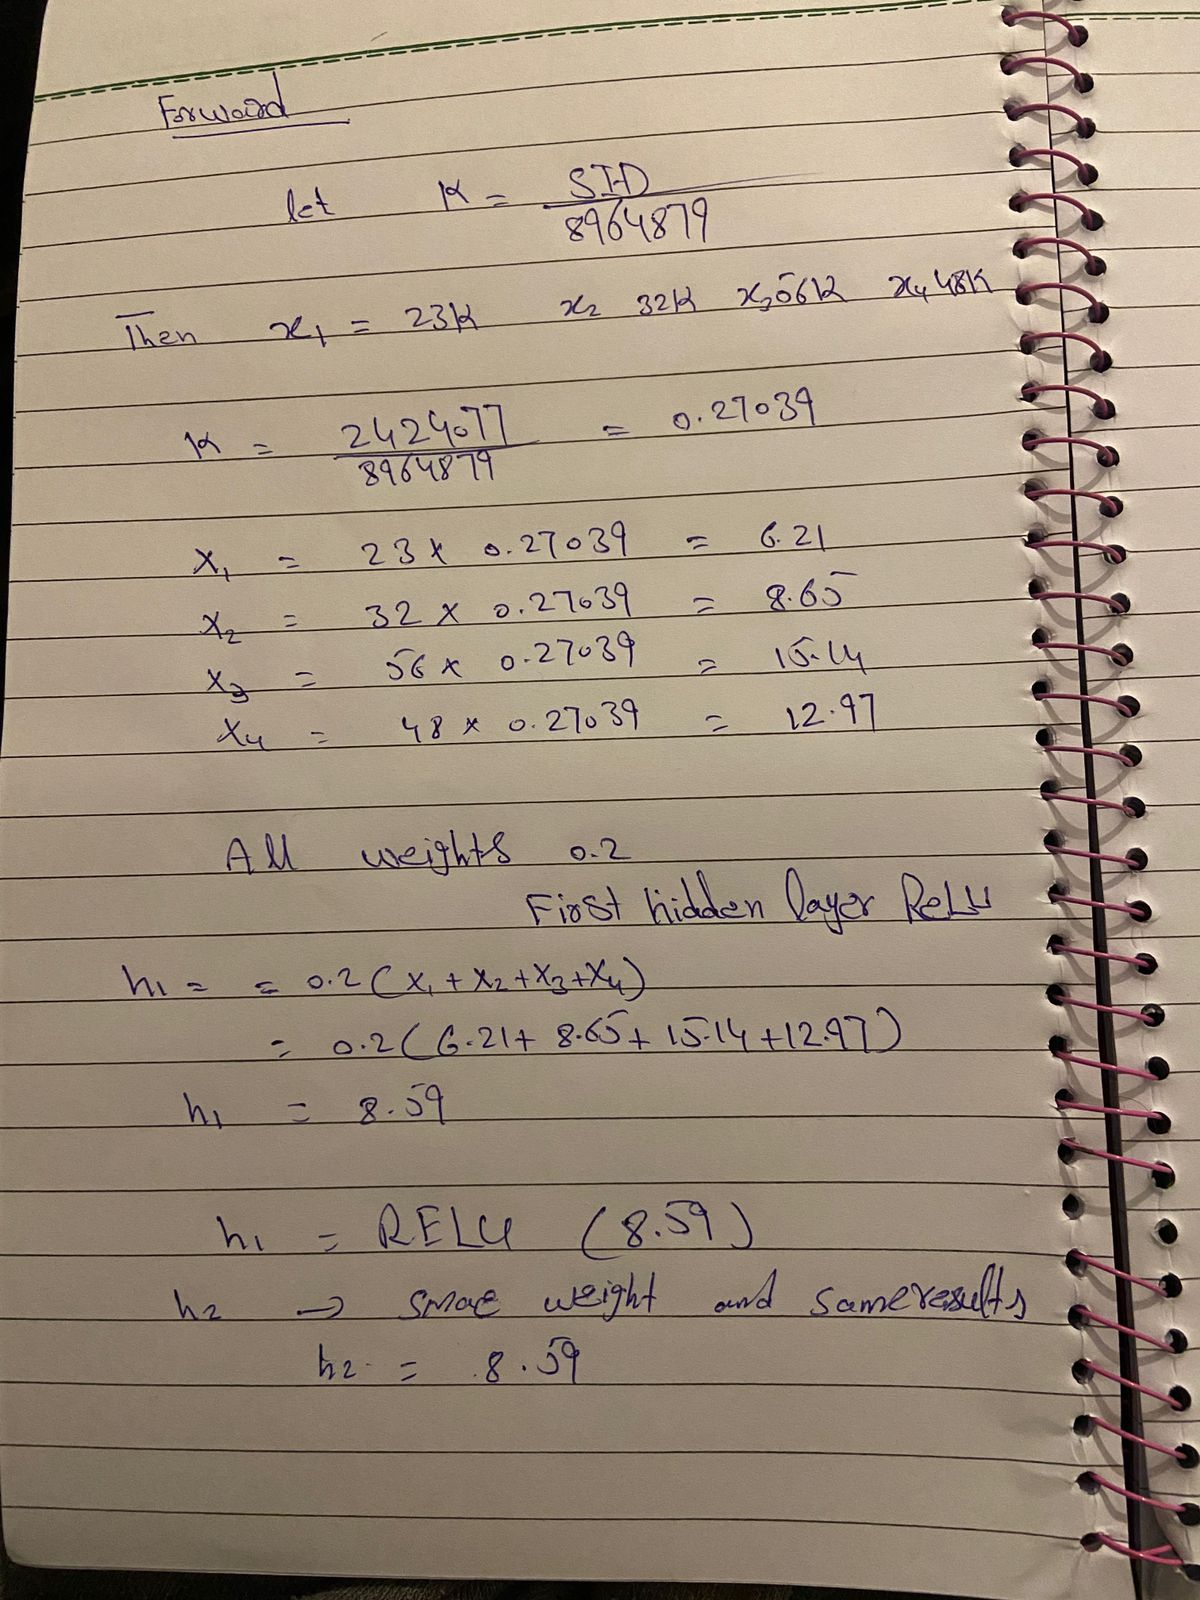 Forward
let K = SID / 8964879
Then x₁ = 23K x₂ 32K x₃ 56K x₄ 48K
K = 2424077 / 8964879 = 0.27039
X₁ = 23 × 0.27039 = 6.21
X₂ = 32 × 0.27039 = 8.65
X₃ = 56 × 0.27039 = 15.14
X₄ = 48 × 0.27039 = 12.97
All weights 0.2
First hidden layer ReLU
h₁ = = 0.2 (X₁ + X₂ + X₃ + X₄)
= 0.2 (6.21 + 8.65 + 15.14 + 12.97)
h₁ = 8.59
h₁ = RELU (8.59)
h₂ → smae weight and same results
h₂ = 8.59